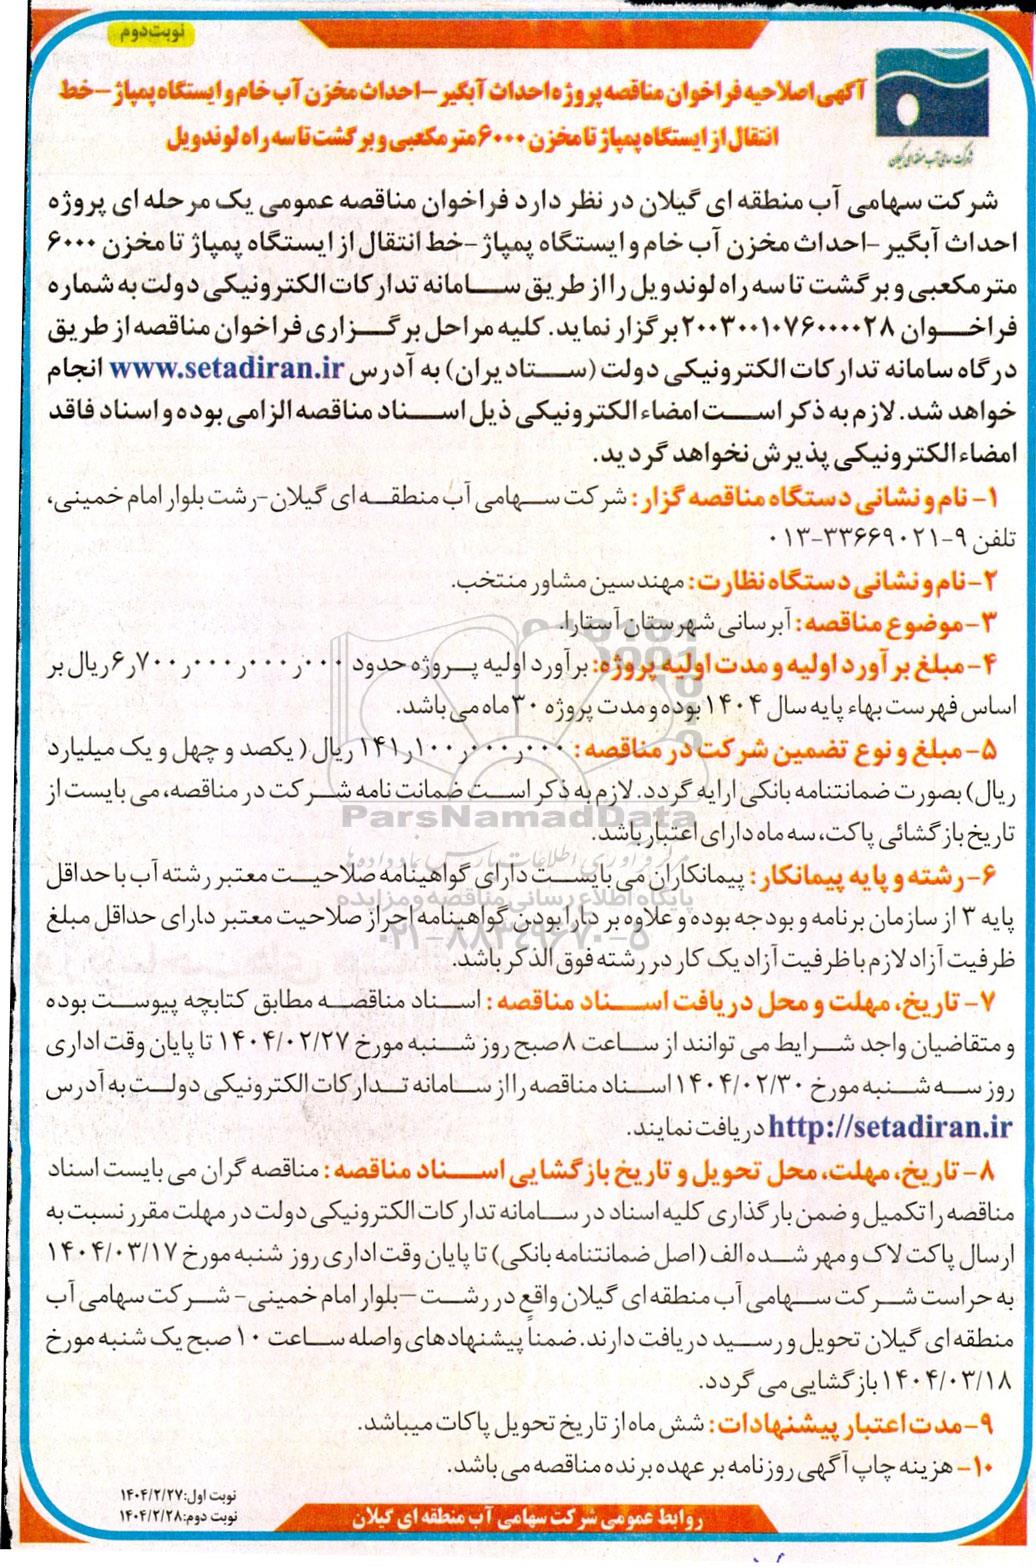 نوبت دوم
آگهی اصلاحیه فراخوان مناقصه پروژه احداث آبگیر –احداث مخزن آب خام و ایستگاه پمپاژ –خط
انتقال از ایستگاه پمپاژ تا مخزن ۶۰۰۰ متر مکعبی و برگشت تا سه راه لوندویل
شرکت سهامی آب منطقه ای گیلان
شرکت سهامی آب منطقه ای گیلان در نظر دارد فراخوان مناقصه عمومی یک مرحله ای پروژه
احداث آبگیر –احداث مخزن آب خام و ایستگاه پمپاژ-خط انتقال از ایستگاه پمپاژ تا مخزن ۶۰۰۰
متر مکعبی و برگشت تا سه راه لوندویل را از طریق سامانه تدارکات الکترونیکی دولت به شماره
فراخوان ۲۰۰۳۰۰۱۰۷۶۰۰۰۰۲۸ برگزار نماید. کلیه مراحل برگزاری فراخوان مناقصه از طریق
درگاه سامانه تدارکات الکترونیکی دولت (ستاد یران) به آدرس www.setadiran.ir انجام
خواهد شد. لازم به ذکر است امضاء الکترونیکی ذیل اسناد مناقصه الزامی بوده و اسناد فاقد
امضاء الکترونیکی پذیرش نخواهد گردید.
۱- نام و نشانی دستگاه مناقصه گزار: شرکت سهامی آب منطقه ای گیلان-رشت بلوار امام خمینی،
تلفن ۹-۳۳۶۶۹۰۲۱-۰۱۳
۲-نام و نشانی دستگاه نظارت: مهندسین مشاور منتخب.
۳-موضوع مناقصه: آبرسانی شهرستان آستارا.
۴-مبلغ برآورد اولیه و مدت اولیه پروژه: برآورد اولیه پروژه حدود ۶ر۷۰۰ر۰۰۰ر۰۰۰ر۰۰۰ ریال بر
اساس فهرست بهاء پایه سال ۱۴۰۴ بوده و مدت پروژه ۳۰ ماه می باشد.
۵-مبلغ و نوع تضمین شرکت در مناقصه: ۱۴۱ر۱۰۰ر۰۰۰ر۰۰۰ ریال ( یکصد و چهل و یک میلیارد
ریال) بصورت ضمانتنامه بانکی ارایه گردد. لازم به ذکر است ضمانت نامه شرکت در مناقصه، می بایست از
تاریخ بازگشائی پاکت، سه ماه دارای اعتبار باشد.
ParsNamadData
مرکز فرآوری اطلاعات پارس نماد داده ها
۶-رشته و پایه پیمانکار: پیمانکاران می بایست دارای گواهینامه صلاحیت معتبر رشته آب با حداقل
پایگاه اطلاع رسانی مناقصه و مزایده
پایه ۳ از سازمان برنامه و بودجه بوده و علاوه بر دارا بودن گواهینامه احراز صلاحیت معتبر دارای حداقل مبلغ
۰۲۱-۸۸۳۴۹۶۷۰-۵
ظرفیت آزاد لازم با ظرفیت آزاد یک کار در رشته فوق الذکر باشد.
۷- تاریخ، مهلت و محل دریافت اسناد مناقصه: اسناد مناقصه مطابق کتابچه پیوست بوده
و متقاضیان واجد شرایط می توانند از ساعت ۸ صبح روز شنبه مورخ ۱۴۰۴/۰۲/۲۷ تا پایان وقت اداری
روز سه شنبه مورخ ۱۴۰۴/۰۲/۳۰ اسناد مناقصه را از سامانه تدارکات الکترونیکی دولت به آدرس
http://setadiran.ir دریافت نمایند.
۸- تاریخ، مهلت، محل تحویل و تاریخ بازگشایی اسناد مناقصه: مناقصه گران می بایست اسناد
مناقصه را تکمیل و ضمن بارگذاری کلیه اسناد در سامانه تدارکات الکترونیکی دولت در مهلت مقرر نسبت به
ارسال پاکت لاک و مهر شده الف (اصل ضمانتنامه بانکی) تا پایان وقت اداری روز شنبه مورخ ۱۴۰۴/۰۳/۱۷
به حراست شرکت سهامی آب منطقه ای گیلان واقع در رشت –بلوار امام خمینی- شرکت سهامی آب
منطقه ای گیلان تحویل و رسید دریافت دارند. ضمناً پیشنهادهای واصله ساعت ۱۰ صبح یک شنبه مورخ
۱۴۰۴/۰۳/۱۸ بازگشایی می گردد.
۹-مدت اعتبار پیشنهادات: شش ماه از تاریخ تحویل پاکات میباشد.
۱۰- هزینه چاپ آگهی روزنامه بر عهده برنده مناقصه می باشد.
نوبت اول:۱۴۰۴/۲/۲۷
نوبت دوم:۱۴۰۴/۲/۲۸
روابط عمومی شرکت سهامی آب منطقه ای گیلان